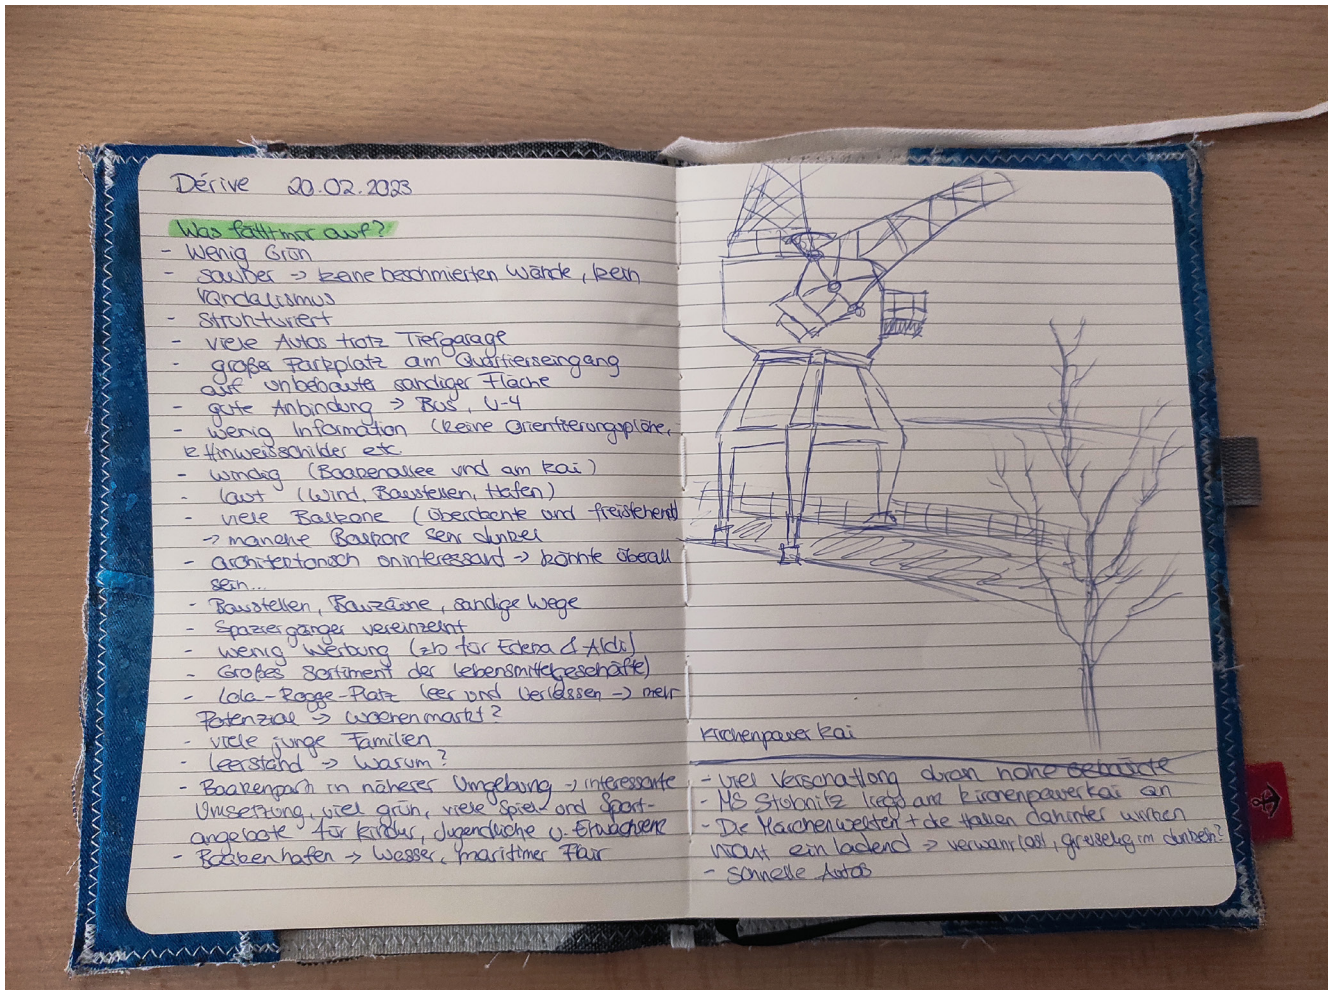 Dérive 20.02.2023
Was fällt mir auf?
- Wenig Grün
- sauber -> keine beschmierten Wände, kein
Vandalismus
- Strukturiert
- viele Autos trotz Tiefgarage
- großer Parkplatz am Quartierseingang
auf unbebauter sandiger Fläche
- gute Anbindung -> Bus, U-4
- wenig Information (keine Orientierungspläne,
Hinweisschilder etc.
- windig (Baakenallee und am Kai)
- laut (Wind, Baustellen, Hafen)
- viele Balkone (überdachte und freistehend)
-> manche Balkone sehr dunkel
- architektonisch uninteressand -> könnte überall
sein...
- Baustellen, Bauzäune, sandige Wege
- Spaziergänger vereinzelnt
- wenig Werbung (zb für Edeka & Aldi)
- Großes Sortiment der Lebensmittelgeschäfte)
- Lola-Rogge-Platz leer und Verlassen -> mehr
Potenzial -> Wochenmarkt?
- viele junge Familien
- Leerstand -> Warum?
- Baakenpark in näherer Umgebung -> interessante
Umsetzung, viel grün, viele Spiel- und Sport-
angebote für Kinder, Jugendliche u. Erwachsene
- Baakenhafen -> Wasser, maritimer Flair
Kirchenpauerkai
- viel Verschattung durch hohe Gebäude
- MS Stubnitz liegt am Kirchenpauerkai an
- Die Märchenwelten + die Hallen dahinter wirken
nicht einladend -> verwahrlost, gruselig im dunkeln?
- schnelle Autos